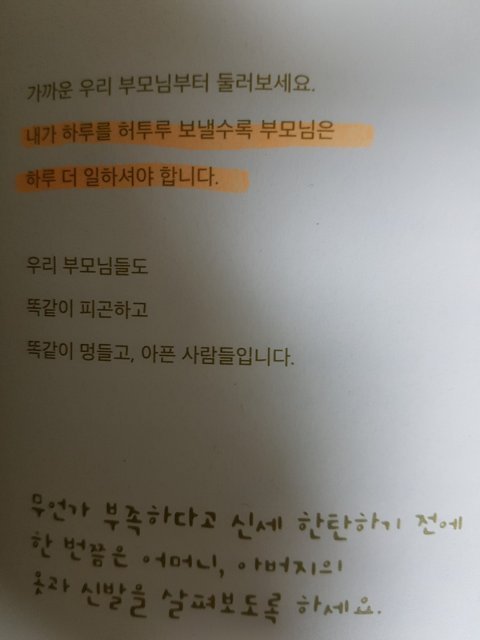 가까운 우리 부모님부터 둘러보세요.
내가 하루를 허투루 보낼수록 부모님은
하루 더 일하셔야 합니다.
우리 부모님들도
똑같이 피곤하고
똑같이 멍들고, 아픈 사람들입니다.
무언가 부족하다고 신세 한탄하기 전에
한 번쯤은 어머니, 아버지의
옷과 신발을 살펴보도록 하세요.